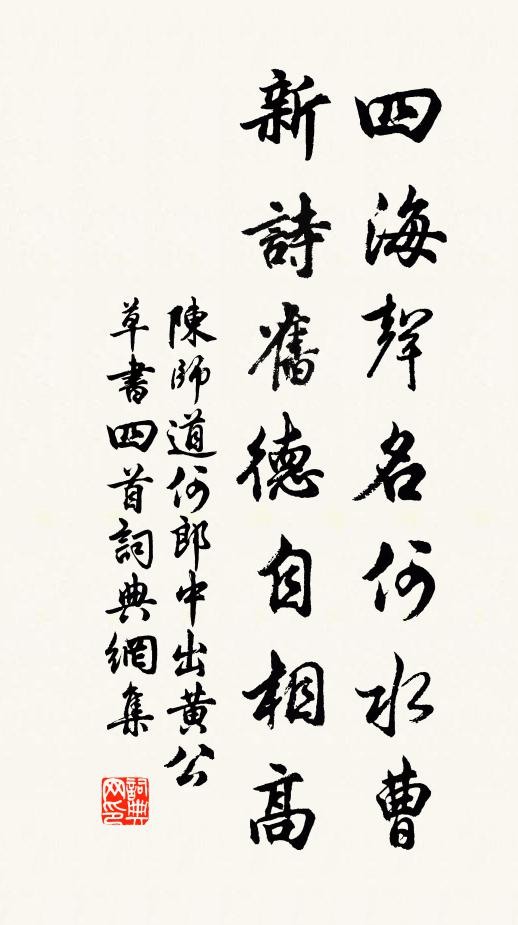 四海聲名何水曹
新詩舊德自相高
陳師道何郎中出黃公
草書四首詞典網集
詞典
网印